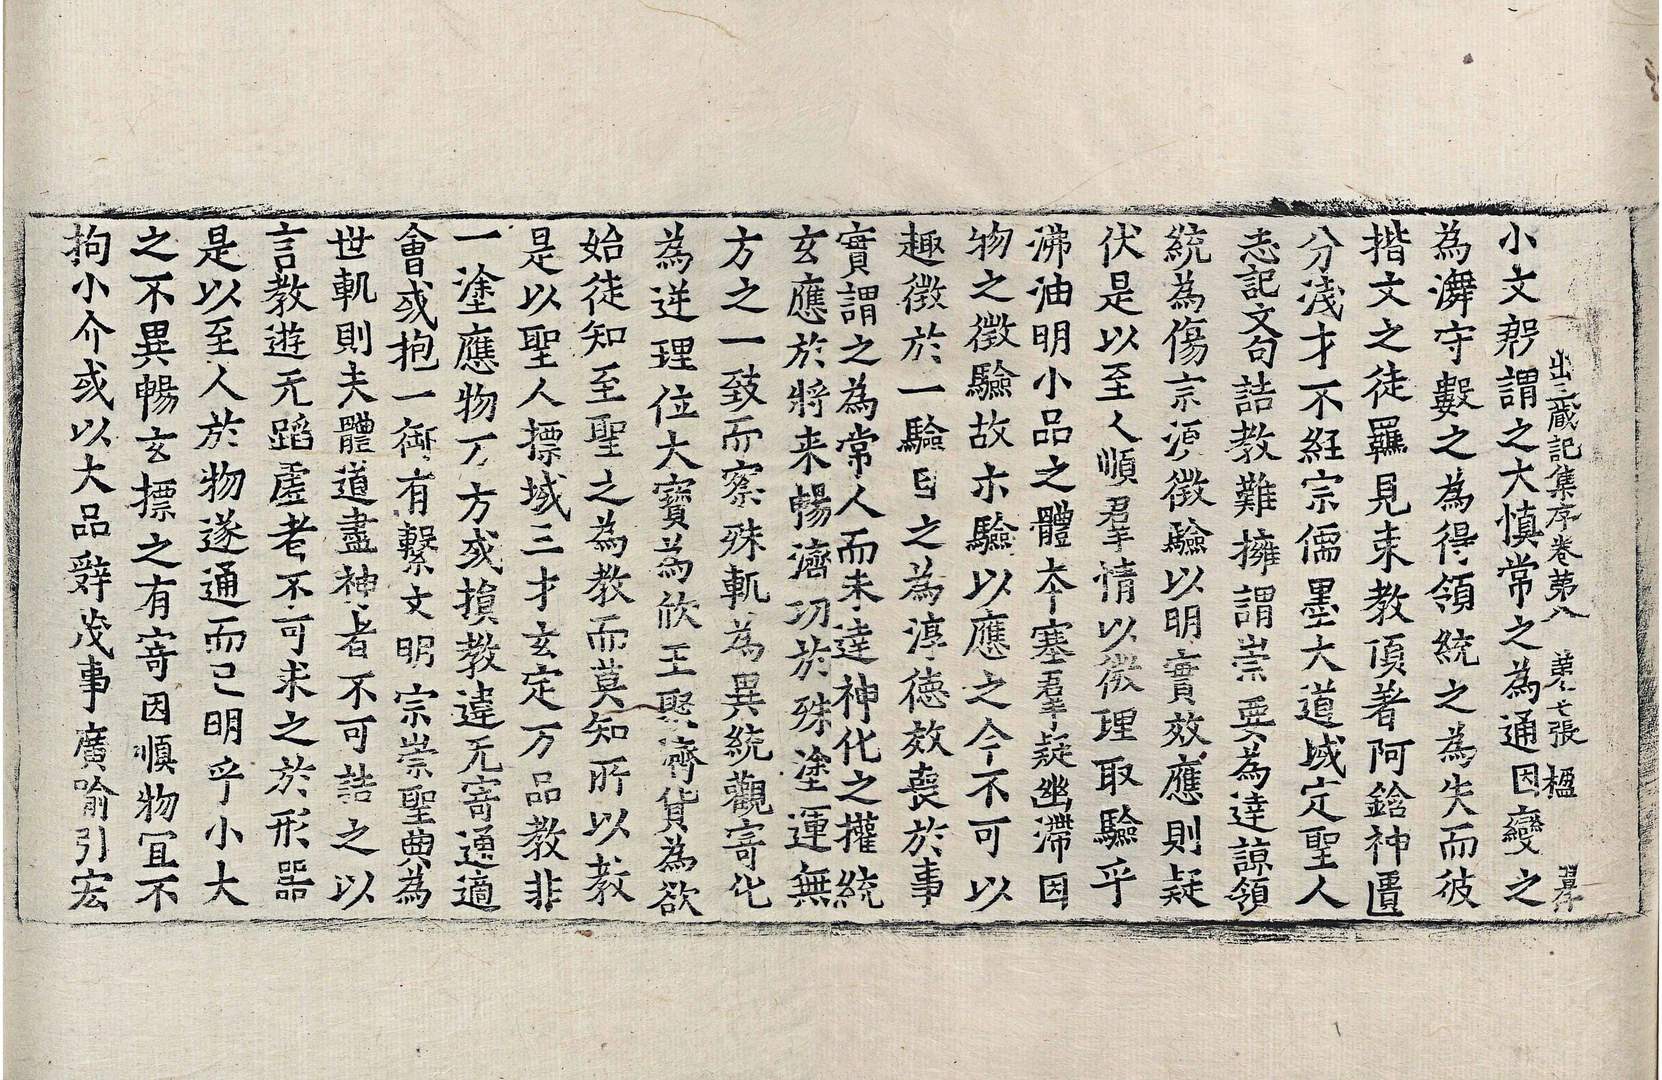 出三藏記集序卷第八 第七張 楹
小文郄謂之大慎常之為通因變之
為瀞守數之為得領統之為失而彼
揩文之徒羈見束教頂著阿鋡神匱
分淺才不經宗儒墨大道域定聖人
志記文句詰教難擁謂崇要為達諒領
統為傷宗須徵驗以明實效應則疑
伏是以至人順羣情以徵理取驗乎
沸油明小品之體本塞羣疑幽滯因
物之徵驗故示驗以應之今不可以
趣徵於一驗目之為淳德效喪於事
實謂之為常人而未達神化之攉統
玄應於將来暢濟功於殊塗運無
方之一致而察殊軌為異統觀寄化
為逆理位大寶為欣王聚濟貨為欲
始徒知至聖之為教而莫知所以教
是以聖人摽域三才玄定万品教非
一塗應物万方或損教違无寄通適
會或抱一御有繫文明宗崇聖典為
世軌則夫體道盡神者不可詰之以
言教遊无蹈虛者不可求之於形器
是以至人於物遂通而已明乎小大
之不異暢玄摽之有寄因順物冝不
拘小介或以大品辤茂事廣喻引宏